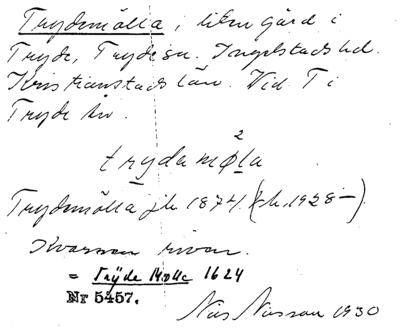 Trydemölla, liten gård i
Tryde, Tryde sn. Ingelstads hd.
Kristianstads län. Vid T i
Tryde by.
2
trydamøla
Trydemölla jb 1874. (jb. 1928–)
Kvarnen riven.
= Tryde Mølle 1624
Nr 5457.
Nils Nilsson 1930